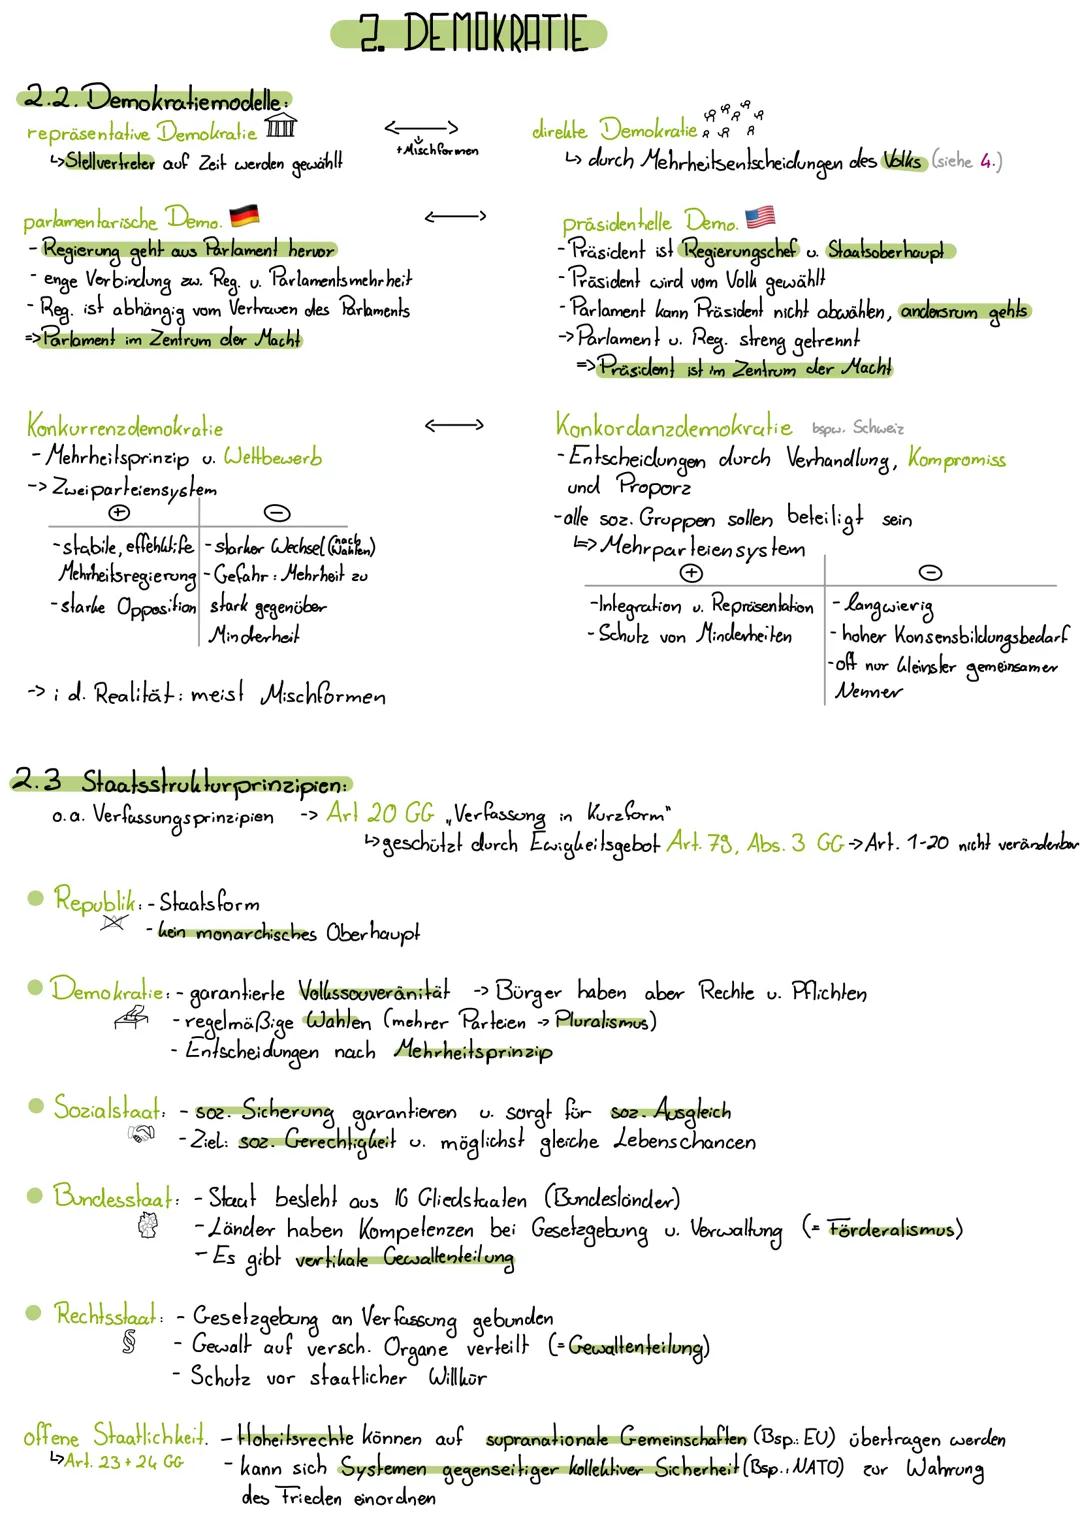 2. DEMOKRATIE
2.2. Demokratiemodelle:
repräsentative Demokratie
↳ Stellvertreter auf Zeit werden gewählt
+ Mischformen
direkte Demokratie
↳ durch Mehrheitsentscheidungen des Volks (siehe 4.)
parlamentarische Demo.
- Regierung geht aus Parlament hervor
- enge Verbindung zw. Reg. u. Parlamentsmehrheit
- Reg. ist abhängig vom Vertrauen des Parlaments
=> Parlament im Zentrum der Macht
präsidentielle Demo.
- Präsident ist Regierungschef u. Staatsoberhaupt
- Präsident wird vom Volk gewählt
- Parlament kann Präsident nicht abwählen, andersrum gehts
-> Parlament u. Reg. streng getrennt
=> Präsident ist im Zentrum der Macht
Konkurrenzdemokratie
- Mehrheitsprinzip u. Wettbewerb
-> Zweiparteiensystem
+
- stabile, effektife
Mehrheitsregierung
- starke Opposition
-
- starker Wechsel (nach Wahlen)
- Gefahr: Mehrheit zu
stark gegenüber
Minderheit
-> i d. Realität: meist Mischformen
Konkordanzdemokratie bspw. Schweiz
- Entscheidungen durch Verhandlung, Kompromiss
und Proporz
- alle soz. Gruppen sollen beteiligt sein
↳> Mehrparteiensystem
+
- Integration u. Repräsentation
- Schutz von Minderheiten
-
- langwierig
- hoher Konsensbildungsbedarf
- oft nur kleinster gemeinsamer
Nenner
2.3 Staatsstrukturprinzipien:
o.a. Verfassungsprinzipien -> Art 20 GG „Verfassung in Kurzform"
↳ geschützt durch Ewigkeitsgebot Art. 79, Abs. 3 GG -> Art. 1-20 nicht veränderbar
Republik: - Staatsform
- kein monarchisches Oberhaupt
Demokratie: - garantierte Volkssouveränität -> Bürger haben aber Rechte u. Pflichten
- regelmäßige Wahlen (mehrer Parteien -> Pluralismus)
- Entscheidungen nach Mehrheitsprinzip
Sozialstaat: - soz. Sicherung garantieren u. sorgt für soz. Ausgleich
- Ziel: soz. Gerechtigkeit u. möglichst gleiche Lebenschancen
Bundesstaat: - Staat besteht aus 16 Gliedstaaten (Bundesländer)
- Länder haben Kompetenzen bei Gesetzgebung u. Verwaltung (= Förderalismus)
- Es gibt vertikale Gewaltenteilung
Rechtsstaat: - Gesetzgebung an Verfassung gebunden
§ - Gewalt auf versch. Organe verteilt (= Gewaltenteilung)
- Schutz vor staatlicher Willkür
offene Staatlichkeit. - Hoheitsrechte können auf supranationale Gemeinschaften (Bsp.: EU) übertragen werden
↳ Art. 23 + 24 GG - kann sich Systemen gegenseitiger kollektiver Sicherheit (Bsp.: NATO) zur Wahrung
des Frieden einordnen